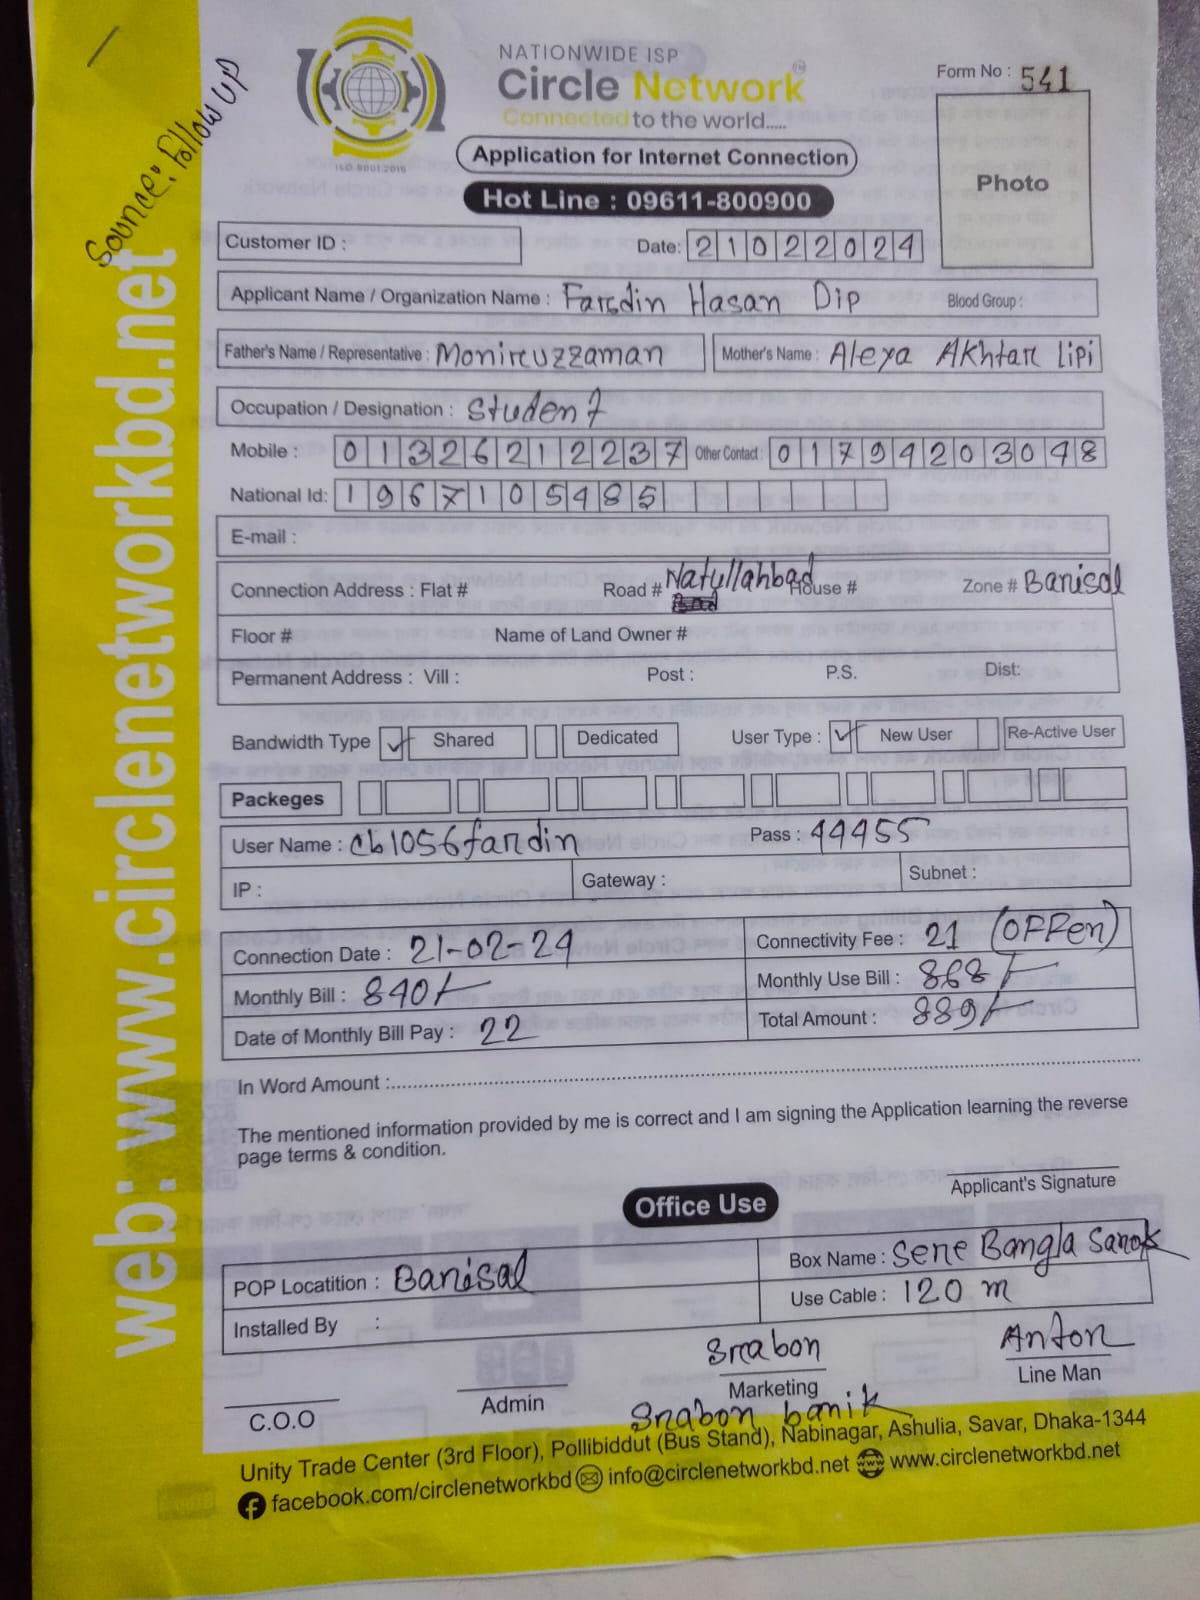 Source: Follow UP
NATIONWIDE ISP
Circle Network
Connected to the world.....
ISO 9001:2015
Form No : 541
Application for Internet Connection
Photo
Hot Line : 09611-800900
Customer ID :
Date: 21022024
Applicant Name / Organization Name : Fardin Hasan Dip Blood Group :
Father's Name / Representative : Moniruzzaman Mother's Name : Aleya Akhtar Lipi
Occupation / Designation : Student
Mobile : 01326212237 Other Contact : 01794203048
National Id: 1967105485
E-mail :
Connection Address : Flat # Road # Natullahbad House # Zone # Barisal
Floor # Name of Land Owner #
Permanent Address : Vill : Post : P.S. Dist:
Bandwidth Type Shared Dedicated User Type : New User Re-Active User
Packeges
User Name : cb1056fardin Pass : 44455
IP : Gateway : Subnet :
Connection Date : 21-02-24 Connectivity Fee : 21 (OFFer)
Monthly Bill : 840/- Monthly Use Bill : 868/-
Date of Monthly Bill Pay : 22 Total Amount : 889/-
In Word Amount :
The mentioned information provided by me is correct and I am signing the Application learning the reverse
page terms & condition.
Applicant's Signature
Office Use
POP Locatition : Barisal Box Name : Sere Bangla Sarok
Installed By : Use Cable : 120 m
Srabon Anton
C.O.O Admin Marketing Line Man
Srabon banik
Unity Trade Center (3rd Floor), Pollibiddut (Bus Stand), Nabinagar, Ashulia, Savar, Dhaka-1344
facebook.com/circlenetworkbd info@circlenetworkbd.net www.circlenetworkbd.net
web: www.circlenetworkbd.net